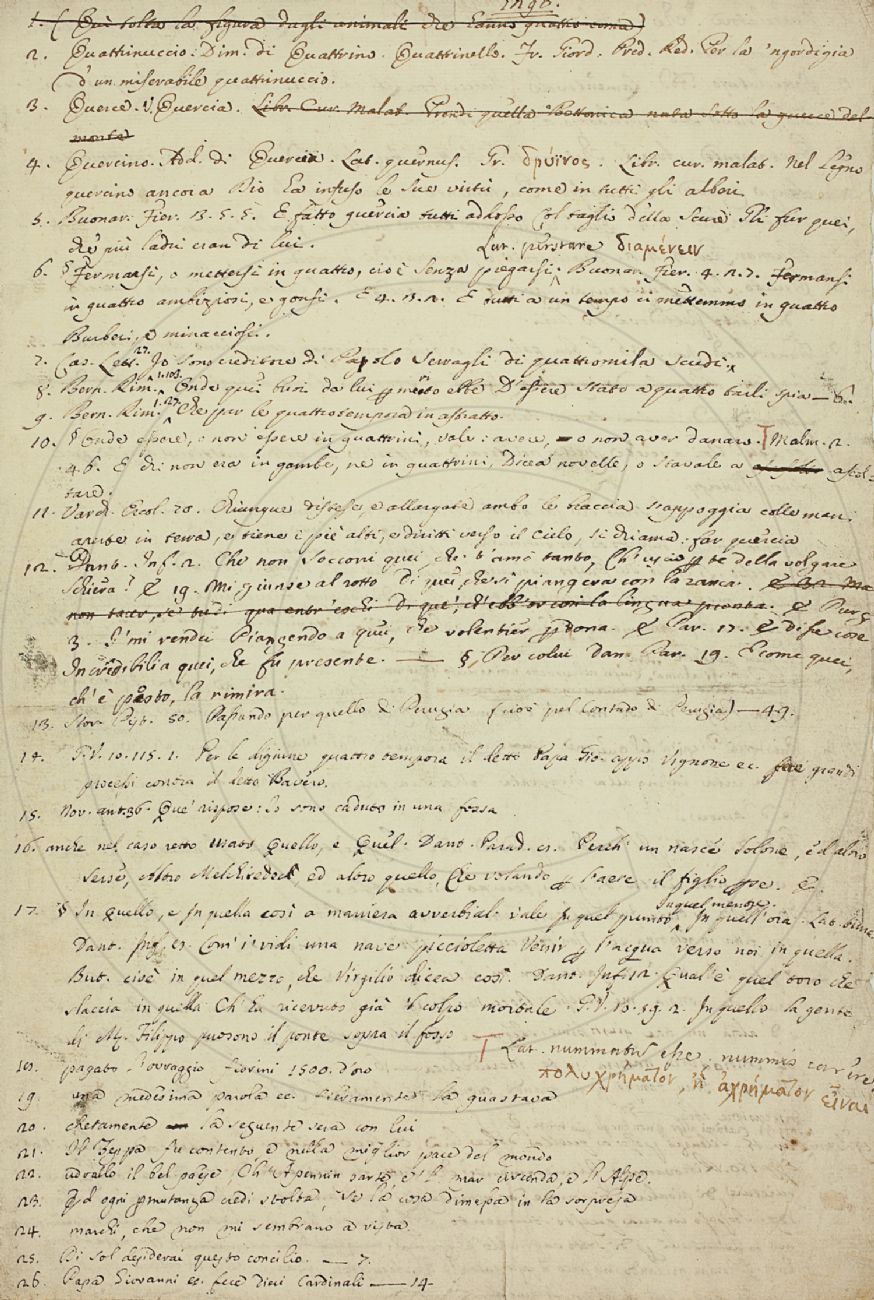 1. ( Qui solea la figura degli animali che hanno quattro
2. Quattrinuccio: Dim. di Quattrino. Quattrinello. Fr. Giord. Pred. Red. Per la 'ngordigia
d'un miserabile quattrinuccio.
3. Querce. V. Quercia. Libr. Cur. Malat. Prendi quella Bettonica nata sotto la querce del
monte
4. Quercino. Add. di Quercia. Lat. quernus. Gr. δρύϊνος. Libr. cur. malat. Nel legno
quercino ancora Dio ha infuso le sue virtù, come in tutti gli alberi.
5. Buonar. Fier. 3. 5. 5. E fatto quercia tutti addosso Col taglio della scure Gli fur quei,
che più ladri eran di lui.
Lat. perstare διαμένειν
6. § Fermarsi, o mettersi in quattro, cioè senza piegarsi. Buonar. Fier. 4. 2. 7. Fermansi
in quattro ambiziosi, e gonfi. E 4. 2. E tutti a un tempo ci mettemmo in quattro
Burberi, e minacciosi.
7. Cas. Lett. 27. Io sono creditore di Paolo Serragli di quattromila scudi
8. Bern. Rim. 1. 103. Onde quei tuoi da lui merto ebbe D'essere stato a quattro spia — 6.
9. Bern. Rim. 1. 27. Che per le quattrotempora in astratto.
10. § Onde essere, o non essere in quattrini, vale: avere, o non aver danaro. T Malm. 2.
46. E chi non era in gambe, nè in quattrini, Dicea novelle, o stavale a ascol-
tare.
11. Varch. Ercol. 20. Chiunque distese, e allargate ambo le braccia s'appoggia colle mani
aperte in terra, e tiene i piè alti, e diritti verso il cielo, si chiama: far quercia
12. Dant. Inf. 2. Che non soccorri quei, che t'amò tanto, Ch'uscìo per te della volgare
schiera? E 19. Mi giunse al rotto Di quei, che sì piangeva con la zanca. E 32. Ma
non tacer, se tu di qua entr'eschi Di que', ch'ebb'or così la lingua pronta. E Purg.
3. I' mi rendei Piangendo a quei, che volentier perdona. E Par. 17. E disse cose
Incredibili a quei, che fu presente. — § Per colui Dan. Par. 19. E come quei,
ch'è pasto, la rimira.
13. Stor. Pist. 50. Passando per quello di Perugia (cioè pel Contado di Perugia) — 49.
14. G. V. 10. 115. 1. Per le digiune quattro tempora il detto Papa Gio. appo Vignone ec. fece grandi
processi contra il detto Bavero.
15. Nov. ant. 36. Que' rispose: Io sono caduto in una fossa
16. anche nel caso retto usato Quello, e Quel. Dant. Parad. 8. Perch' un nasce Solone, ed altro
Serse, Altro Melchisedech, ed altro quello, Che volando per l'aere il figlio perse. E
17. § In quello, e In quella così a maniera avverbial. vale In quel punto, In quel mentre. In quell'ora. Lat.
Dant. Inf. 8. Com' i' vidi una nave piccioletta Venir per l'acqua verso noi in quella.
But. cioè in quel mezzo, che Virgilio dicea così. Dant. Inf. 12. Qual è quel toro che
slaccia in quella Ch'ha ricevuto già 'l colpo mortale. G. V. 10. 59. 2. In quello la gente
di M. Filippo puosono il ponte sopra il fosso
T Lat. nummatus esse. nummis carere
πολυχρήματον, ἢ ἀχρήματον εἶναι
18. pagato l'ovraggio fiorini 1500. d'oro
19. una medesima parola ec. lievemente la guastava
20. chetamente la seguente sera con lui
21. Il Zeppa fu contento e nella miglior pace del mondo
22. udrallo il bel paese, Ch'Apennin parte, e 'l mar circonda, e l'Alpe.
23. Ed ogni permutanza credi stolta, Se la cosa dimessa in la sorpresa
24. marchi, che non mi sembrano a vista.
25. Di sol desiderai questo concilio. — 7.
26. Papa Giovanni ec. fece dieci Cardinali — 14